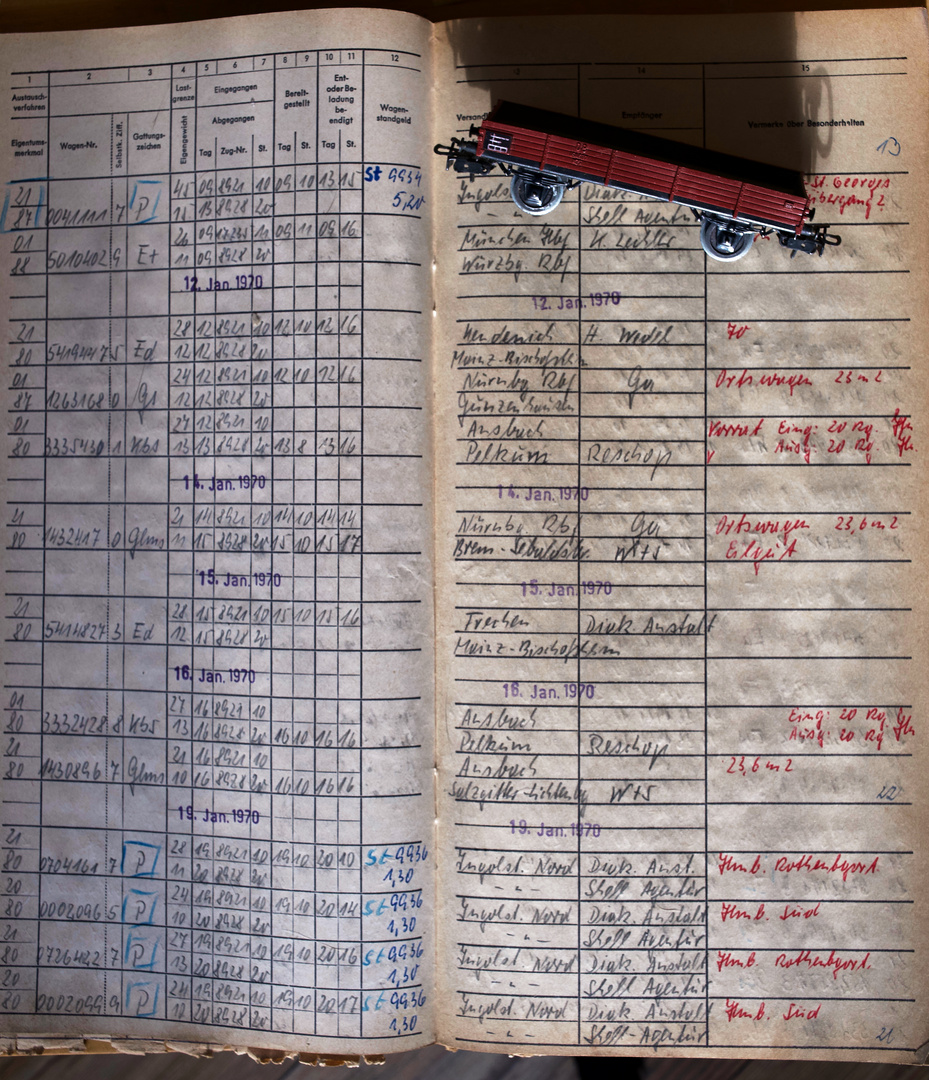 1 2 3 4 5 6 7 8 9 10 11 12
Austausch-verfahren
Eigentums-merkmal
Wagen-Nr.
Selbstk. Ziff.
Gattungs-zeichen
Last-grenze
Eigengewicht
Eingegangen
Abgegangen
Tag Zug-Nr. St.
Bereit-gestellt
Tag St.
Ent- oder Be-ladung be-endigt
Tag St.
Wagen-standgeld
14 15
Empfänger
Vermerke über Besonderheiten
13
21 45 09 8921 10 09 10 13 15 St 9934 Ingolst.
87 0041111 7 P 15 13 8928 20 5,20 Shell Agentur
01 26 09 11 09 11 09 16 München Hbf H. Lechler
88 5010402 9 Et 11 09 8928 20 Würzbg. Rbf
12. Jan. 1970 12. Jan. 1970
21 28 12 8921 10 12 10 12 16 H. Wedel 70
80 5419447 5 Ed 12 12 8928 20 Mainz-Bischofsheim
01 24 12 8921 10 12 10 12 16 Nürnbg Rbf Ga Ortswagen 23 m2
87 1263168 0 Gs 12 12 8928 20 Gunzenhausen
01 27 12 8921 10 Ansbach Vorrat Eing: 20 Rg.
80 3335430 1 Kbs 13 13 8928 20 13 8 13 16 Pelkum Reschop Ausg: 20 Rg.
14. Jan. 1970 14. Jan. 1970
21 21 14 8921 10 14 10 14 14 Nürnbg Rbf Ga Ortswagen 23,6 m2
80 1432417 0 Glms 11 15 8928 20 15 10 15 17 W+S Eilgut
15. Jan. 1970 15. Jan. 1970
21 28 15 8921 10 15 10 15 16 Frechen Diak. Anstalt
80 5414827 3 Ed 12 15 8928 20 Mainz-Bischofsheim
16. Jan. 1970 16. Jan. 1970
01 27 16 8921 10 Ansbach Eing: 20 Rg
80 3332428 8 Kbs 13 16 8928 20 16 10 16 16 Pelkum Reschop Ausg: 20 Rg
21 21 16 8921 10 Ansbach 23,6 m2
80 1430896 7 Glms 10 16 8928 20 16 10 16 16 Salzgitter-Lichtenbg W+S 22
19. Jan. 1970 19. Jan. 1970
21 28 19 8921 10 19 10 20 10 St 9936 Ingolst. Nord Diak. Anst. Hmb. Rothenbgsort.
80 0704161 7 P 11 20 8928 20 1,30 - " - Shell Agentur
20 24 19 8921 10 19 10 20 14 St 9936 Ingolst. Nord Diak. Anstalt Hmb. Süd
80 0002096 5 P 10 20 8928 20 1,30 - " - Shell Agentur
21 27 19 8921 10 19 10 20 16 St 9936 Ingolst. Nord Diak. Anstalt Hmb. Rothenbgsort.
80 0726422 7 P 13 20 8928 20 1,30 - " - Shell Agentur
20 24 19 8921 10 19 10 20 17 St 9936 Ingolst. Nord Diak. Anstalt Hmb. Süd
80 0002099 9 P 10 20 8928 20 1,30 - " - Shell-Agentur 21